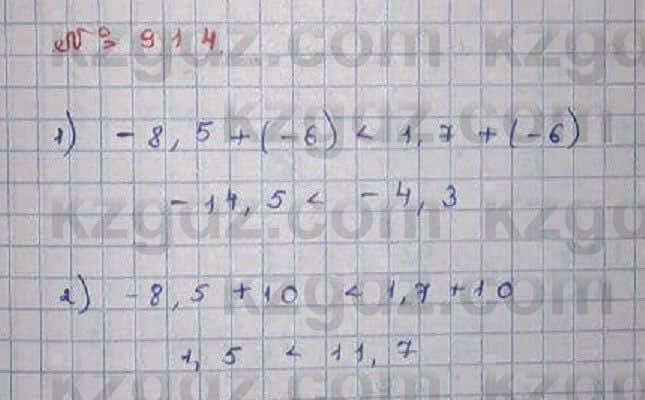 kzgdz.com kzgdz.com
№ 914.
kzgdz.com
1) -8,5+(-6) < 1,7+(-6)
-14,5 < -4,3
kzgdz.com kzgdz.com
2) -8,5+10 < 1,7+10
kzgdz.com
1,5 < 11,7
kzgdz.com kzgdz.com